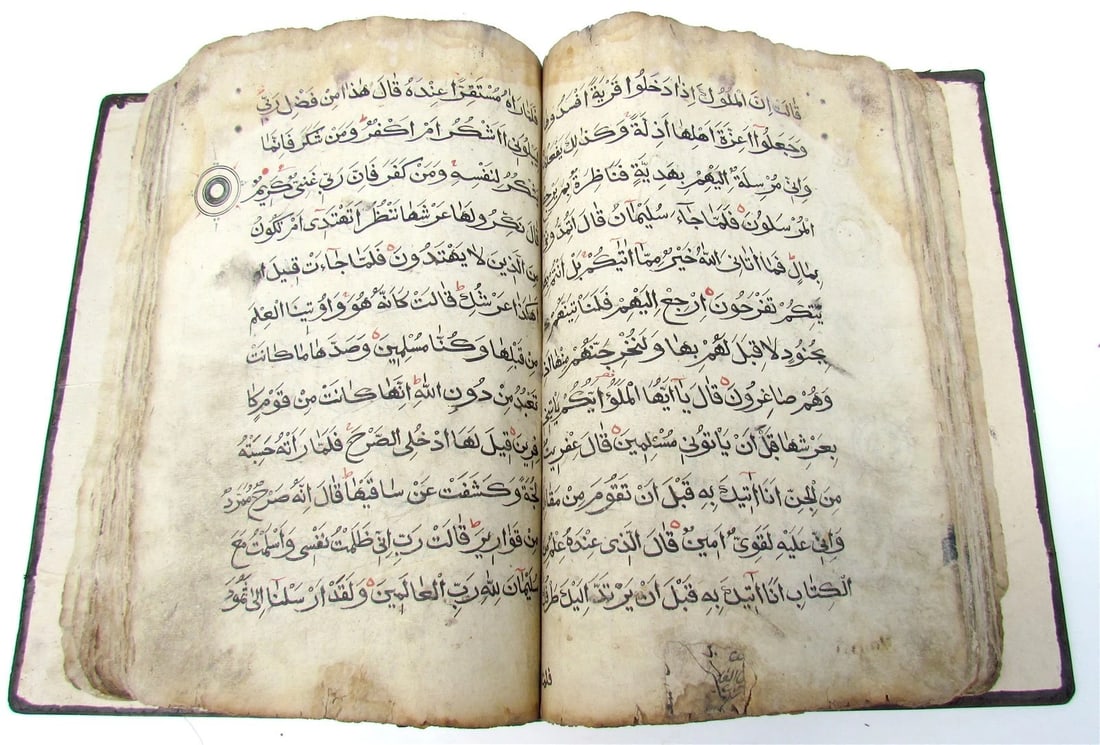 قَالَتْ اِنَّ الْمُلُوكَ اِذَا دَخَلُوا قَرْيَةً اَفْسَدُو
وَجَعَلُوٓا اَعِزَّةَ اَهْلِهَا اَذِلَّةً وَكَذٰلِكَ يَفْعَلُ
وَاِنّى مُرْسِلَةٌ اِلَيْهِمْ بِهَدِيَّةٍ فَنَاظِرَةٌ بِمَ يَرْجِ
الْمُرْسَلُونَ فَلَمَّا جَآءَ سُلَيْمَانَ قَالَ اَتُمِدُّونَ
بِمَالٍ فَمَا اٰتَانِىَ اللّٰهُ خَيْرٌ مِمَّا اٰتٰيكُمْ بَلْ اَنْتُمْ
يَّتِكُمْ تَفْرَحُونَ اِرْجِعْ اِلَيْهِمْ فَلَنَأْتِيَنَّهُمْ
بِجُنُودٍ لَا قِبَلَ لَهُمْ بِهَا وَلَنُخْرِجَنَّهُمْ مِنْهَا اَذِ
وَهُمْ صَاغِرُونَ قَالَ يَآ اَيُّهَا الْمَلَؤُا اَيُّكُمْ يَأْتِينِى
بِعَرْشِهَا قَبْلَ اَنْ يَأْتُونِى مُسْلِمِينَ قَالَ عِفْرِيتٌ
مِنَ الْجِنِّ اَنَا اٰتِيكَ بِهِ قَبْلَ اَنْ تَقُومَ مِنْ مَقَا
وَاِنّى عَلَيْهِ لَقَوِىٌّ اَمِينٌ قَالَ الَّذِى عِنْدَهُ عِلْمٌ مِنَ
الْكِتَابِ اَنَا اٰتِيكَ بِهِ قَبْلَ اَنْ يَرْتَدَّ اِلَيْكَ طَرْفُكَ
فَلَمَّا
فَلَمَّا رَاٰهُ مُسْتَقِرًّا عِنْدَهُ قَالَ هٰذَا مِنْ فَضْلِ رَبِّى
لِيَبْلُوَنِى ءَاَشْكُرُ اَمْ اَكْفُرُ وَمَنْ شَكَرَ فَاِنَّمَا
يَشْكُرُ لِنَفْسِهِ وَمَنْ كَفَرَ فَاِنَّ رَبِّى غَنِىٌّ كَرِيمٌ
قَالَ نَكِّرُوا لَهَا عَرْشَهَا نَنْظُرْ اَتَهْتَدِى اَمْ تَكُونُ
مِنَ الَّذِينَ لَا يَهْتَدُونَ فَلَمَّا جَآءَتْ قِيلَ اَ
هٰكَذَا عَرْشُكِ قَالَتْ كَاَنَّهُ هُوَ وَاُوتِينَا الْعِلْمَ
مِنْ قَبْلِهَا وَكُنَّا مُسْلِمِينَ وَصَدَّهَا مَا كَانَتْ
تَعْبُدُ مِنْ دُونِ اللّٰهِ اِنَّهَا كَانَتْ مِنْ قَوْمٍ كَا
فِرِينَ قِيلَ لَهَا ادْخُلِى الصَّرْحَ فَلَمَّا رَاَتْهُ حَسِبَتْهُ
لُجَّةً وَكَشَفَتْ عَنْ سَاقَيْهَا قَالَ اِنَّهُ صَرْحٌ مُمَرَّدٌ
مِنْ قَوَارِيرَ قَالَتْ رَبِّ اِنِّى ظَلَمْتُ نَفْسِى وَاَسْلَمْتُ مَعَ
سُلَيْمَانَ لِلّٰهِ رَبِّ الْعَالَمِينَ وَلَقَدْ اَرْسَلْنَا اِلٰى ثَمُودَ